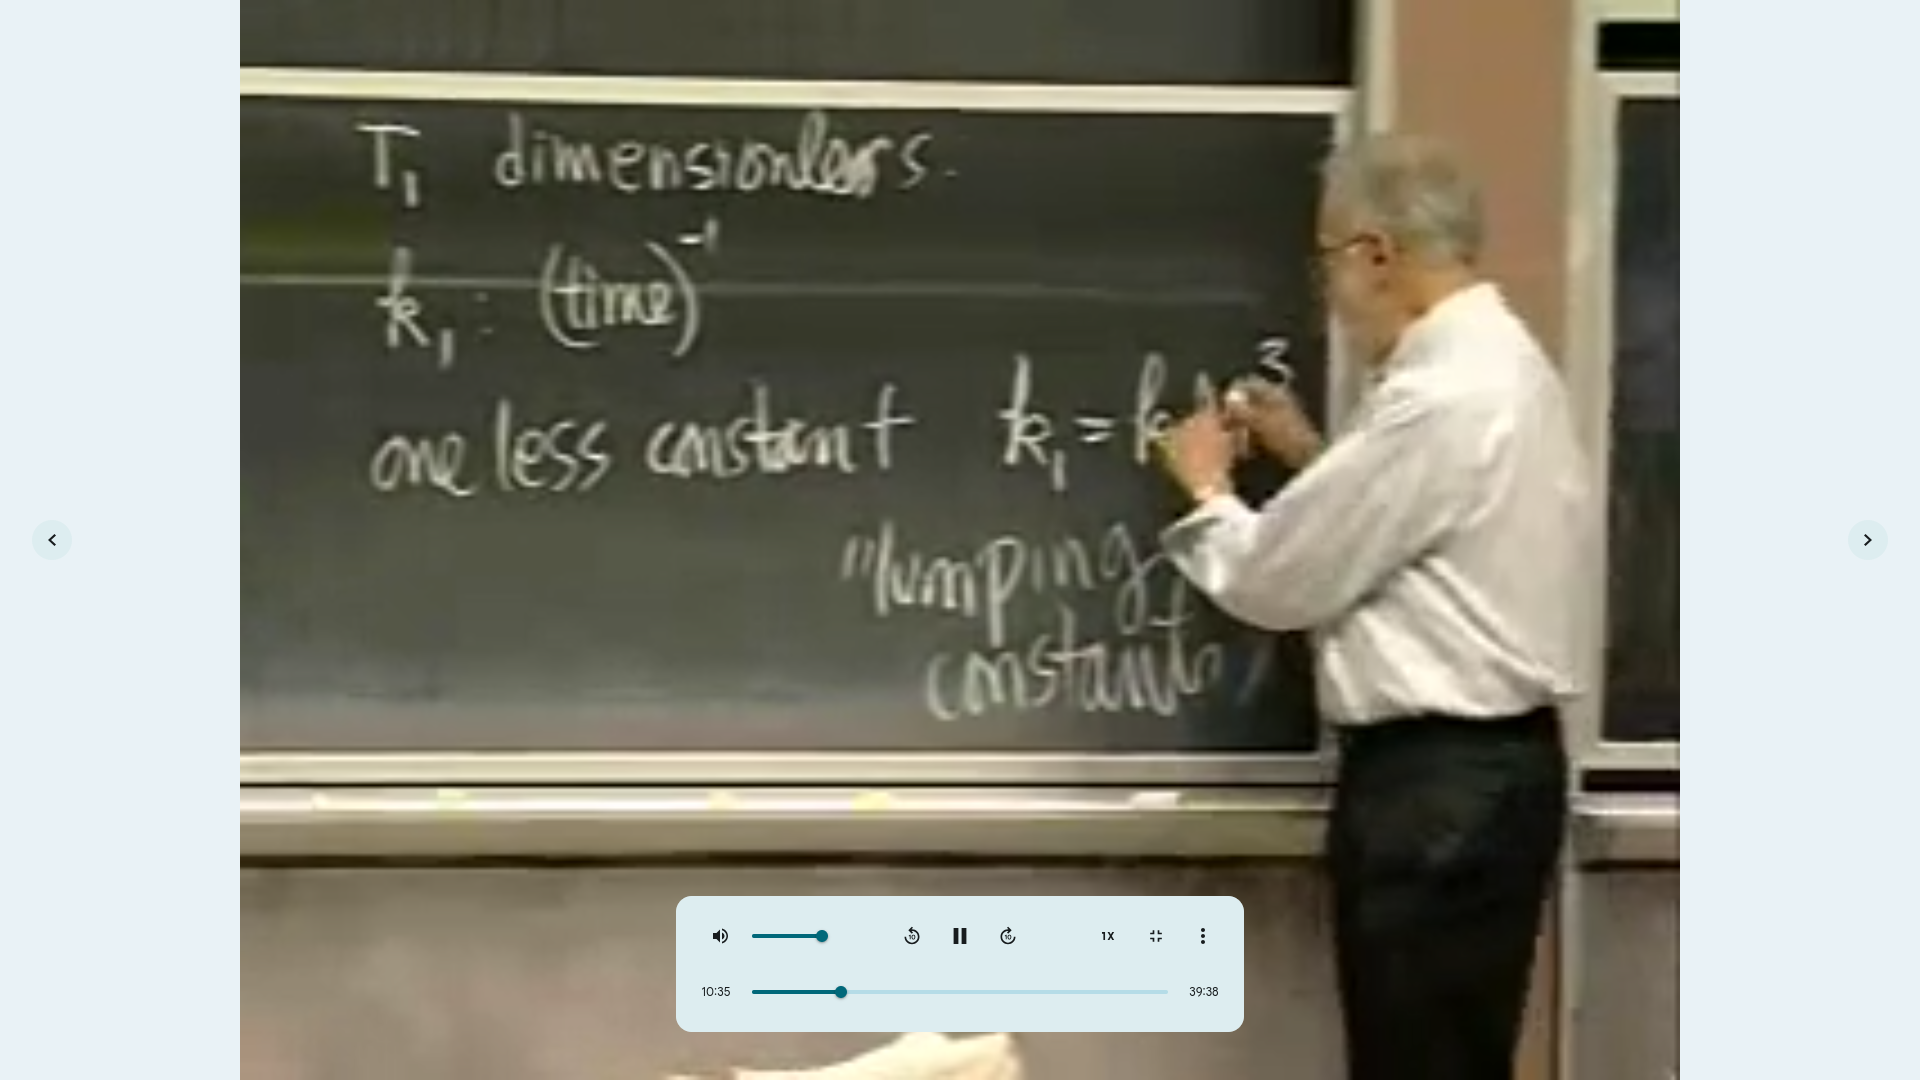 T₁ dimensionless.
k₁: (time)⁻¹
one less constant k₁ = k 3
"lumping
constants"
1X
10:35
39:38